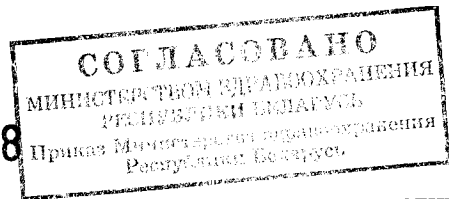 СОГЛАСОВАНО
МИНИСТЕРСТВОМ ЗДРАВООХРАНЕНИЯ
РЕСПУБЛИКИ БЕЛАРУСЬ
8 Приказ Министерства здравоохранения
Республики Беларусь